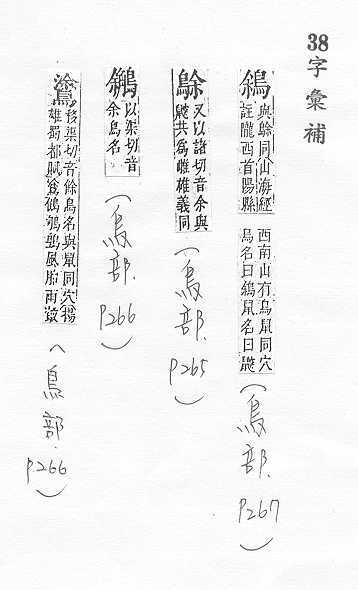 38字彙補
與鵌同山海經
註隴西首陽縣
西南山有鳥鼠同穴
鳥名曰鼠名曰鼵
(鳥部.P267)
鵌又以諸切音余與
鼵共為雌雄義同
(鳥部.P265)
以渠切音
余鳥名
(鳥部.P266)
移渠切音餘鳥名與鼠同穴揚
雄蜀都賦風胎雨鷇
(鳥部.P266)